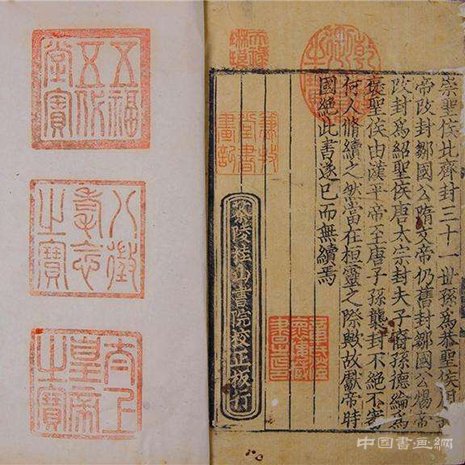 崇聖侯北齊封三十一世孫為恭聖侯周
帝改封鄒國公隋文帝仍舊封鄒國公煬帝
改封為紹聖侯唐太宗封夫子裔孫德倫為
褒聖侯由漢平帝至唐子孫襲封不絕不審
何人脩續之然當在桓靈之際歟故獻帝時
國絕此書遂已而無續焉
茶陵桂山書院校正板行
天祿琳琅
謙牧堂書畫記
五福五代堂寶
八徵耄念之寶
太上皇帝之寶
中国書画網